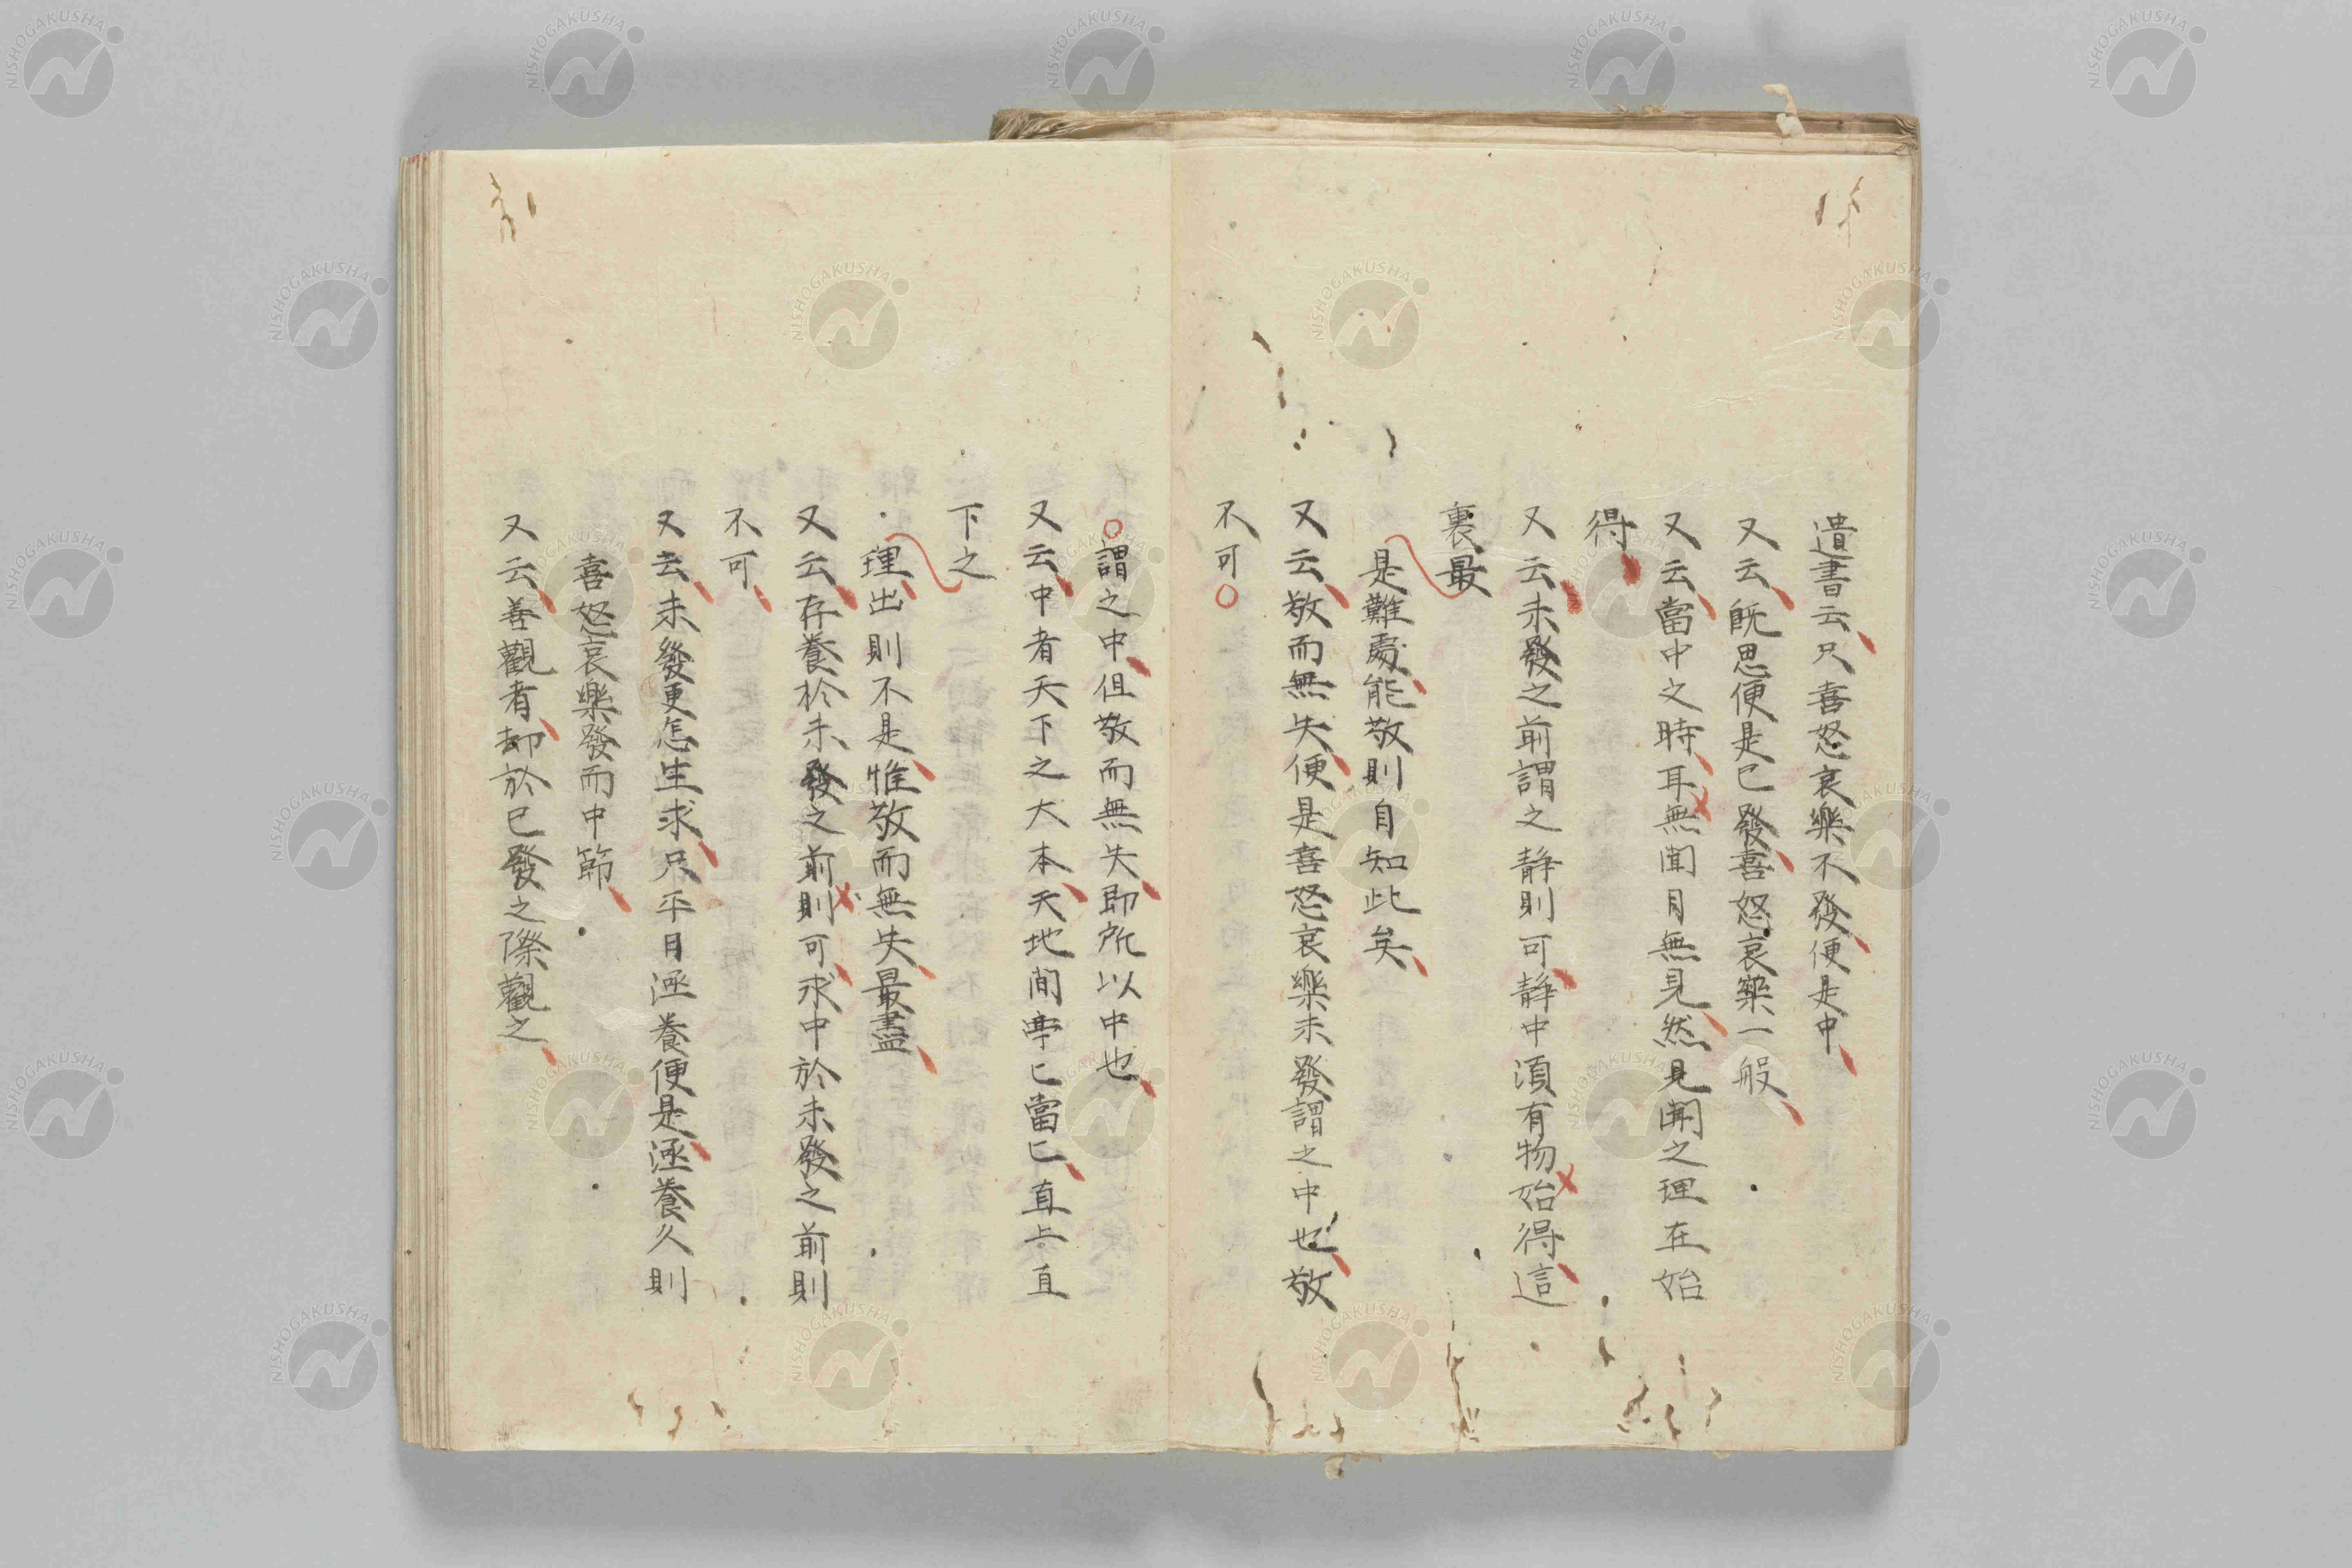 遺書云只喜怒哀樂不發便是中
又云既思便是已發喜怒哀樂一般
又云當中之時耳無聞目無見然見聞之理在始
得
又云未發之前謂之靜則可靜中須有物始得這
裏最
是難處能敬則自知此矣
又云敬而無失便是喜怒哀樂未發謂之中也敬
不可
謂之中但敬而無失即所以中也
又云中者天下之大本天地間亭〻當〻直上直
下之
理出則不是惟敬而無失最盡
又云存養於未發之前則可求中於未發之前則
不可
又云未發更怎生求只平日涵養便是涵養久則
喜怒哀樂發而中節
又云善觀者却於已發之際觀之
NISHOGAKUSHA